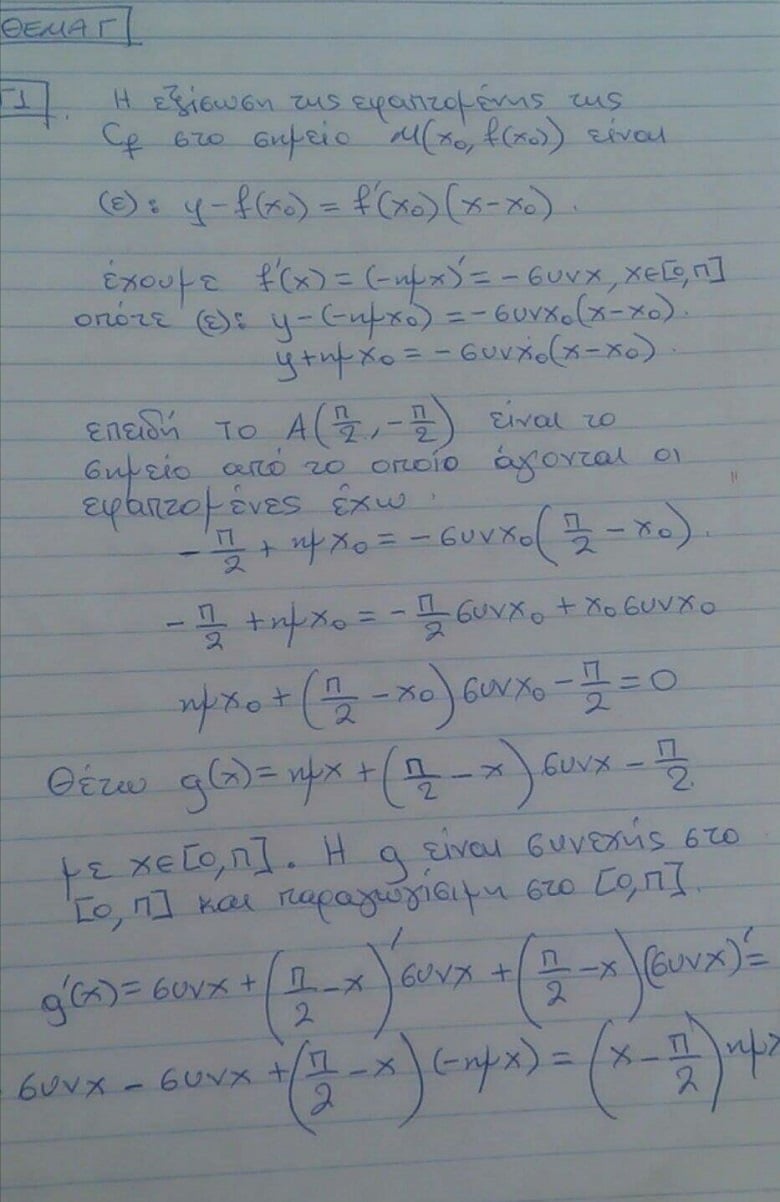 ΘΕΜΑ Γ
Γ1. Η εξίσωση της εφαπτομένης της
Cf στο σημείο M(x₀, f(x₀)) είναι
(ε): y-f(x₀) = f'(x₀)(x-x₀).
έχουμε f'(x) = (-ημx)' = -συνx, x∈[0,π]
οπότε (ε): y-(-ημx₀) = -συνx₀(x-x₀).
y+ημx₀ = -συνx₀(x-x₀).
επειδή το A(π/2, -π/2) είναι το
σημείο από το οποίο άγονται οι
εφαπτομένες έχω.
-π/2 + ημx₀ = -συνx₀(π/2 - x₀).
-π/2 + ημx₀ = -π/2 συνx₀ + x₀συνx₀
ημx₀ + (π/2 - x₀)συνx₀ - π/2 = 0
Θέτω g(x) = ημx + (π/2 - x)συνx - π/2.
με x∈[0,π]. Η g είναι συνεχής στο
[0,π] και παραγωγίσιμη στο [0,π].
g'(x) = συνx + (π/2 - x)'συνx + (π/2 - x)(συνx)' =
συνx - συνx + (π/2 - x)(-ημx) = (x - π/2)ημx